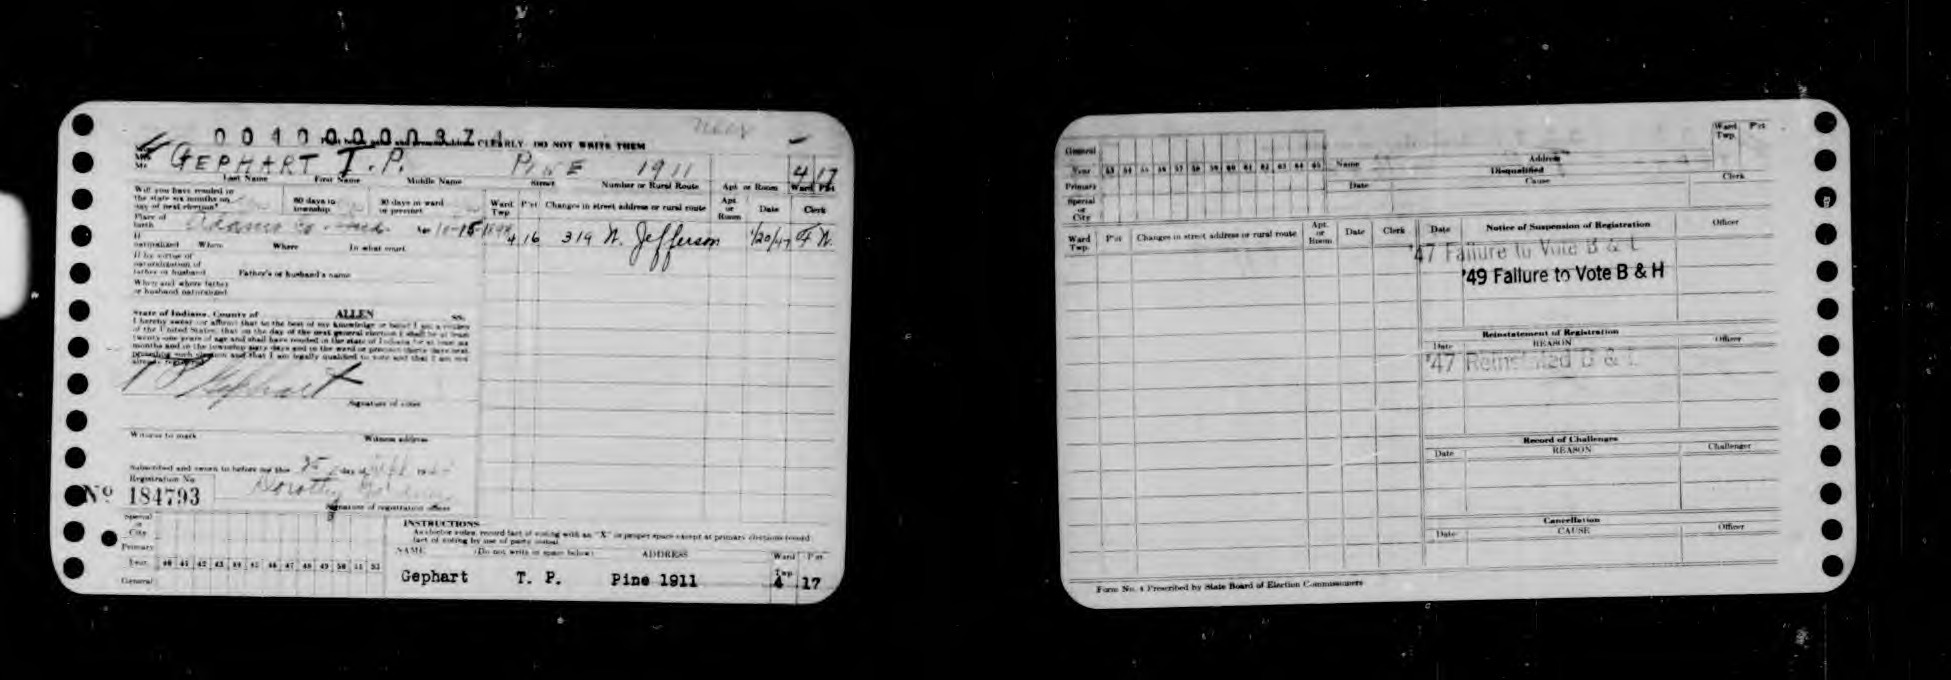 0 0 4 0 0 0 0 0 3 7
CLEARLY DO NOT WRITE THEM
GEPHART T. P. PINE 1911 4 17
Last Name First Name Middle Name Street Number or Rural Route Apt. or Room Ward Pct
Will you have resided in the state six months on day of next election? 60 days in township 30 days in ward or precinct
Ward Twp P'ct Changes in street address or rural route Apt. or Room Date Clerk
Place of birth Adams Co. Ind.
4 16 319 N. Jefferson 1/20/47 F N.
If naturalized When Where In what court
If by virtue of naturalization of father or husband Father's or husband's name
When and where father or husband naturalized
State of Indiana, County of ALLEN ss.
I hereby swear or affirm that to the best of my knowledge or belief I am a citizen
of the United States, that on the day of the next general election I shall be at least
twenty-one years of age and shall have resided in the state of Indiana for at least six
months and in the township sixty days and in the ward or precinct thirty days next
preceding such election and that I am legally qualified to vote and that I am not
already registered
T P Gephart
Signature of voter
Witness to mark Witness address
Subscribed and sworn to before me this 25 day of 19
Registration No.
No 184793
Dorothy
Signature of registration officer
Special or City
Primary
Year 40 41 42 43 44 45 46 47 48 49 50 51 52
General
INSTRUCTIONS
As elector votes, record fact of voting with an "X" in proper space except at primary elections record
fact of voting by use of party initial.
NAME (Do not write in space below) ADDRESS Ward Twp P'ct
Gephart T. P. Pine 1911 4 17
General
Year 53 54 55 56 57 58 59 60 61 62 63 64 65
Primary
Special or City
Name Address Ward Twp. P'ct
Disqualified
Date Cause Clerk
Ward Twp. P'ct Changes in street address or rural route Apt. or Room Date Clerk
Date Notice of Suspension of Registration Officer
'47 Failure to Vote B & L
'49 Failure to Vote B & H
Reinstatement of Registration
Date REASON Officer
'47 Reinstated B & L
Record of Challenges
Date REASON Challenger
Cancellation
Date CAUSE Officer
Form No. 4 Prescribed by State Board of Election Commissioners